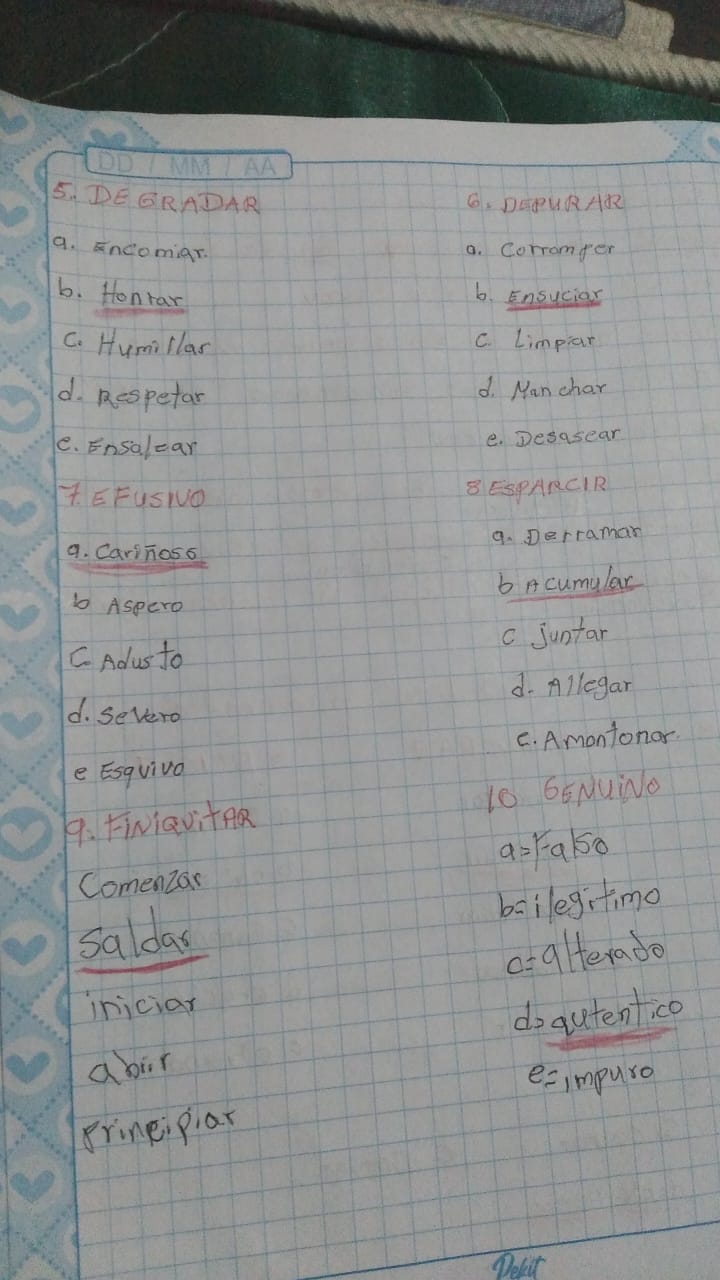 DD / MM / AA
5. DEGRADAR
a. Encomiar.
b. Honrar
c. Humillar
d. Respetar
e. Ensalzar
7. EFUSIVO
a. Cariñoso
b Aspero
C Adusto
d. Severo
e Esquivo
9. FINIQUITAR
Comenzar
Saldar
iniciar
abrir
principiar
6. DEPURAR
a. Corromper
b. Ensuciar
c Limpiar
d. Manchar
e. Desasear
8 ESPARCIR
a. Derramar
b Acumular
c juntar
d. Allegar
e. Amontonar.
10 GENUINO
a= Falso
b= ilegitimo
c= alterado
d= autentico
e= impuro
Pekit